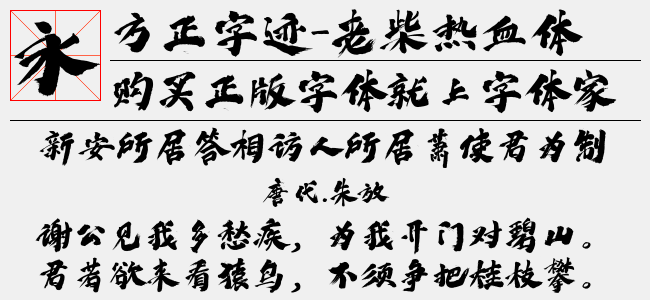 永
方正字迹-老柴热血体
购买正版字体就上字体家
新安所居答相访人所居萧使君为制
唐代.朱放
谢公见我多愁疾，为我开门对碧山。
君若欲来看猿鸟，不须争把桂枝攀。